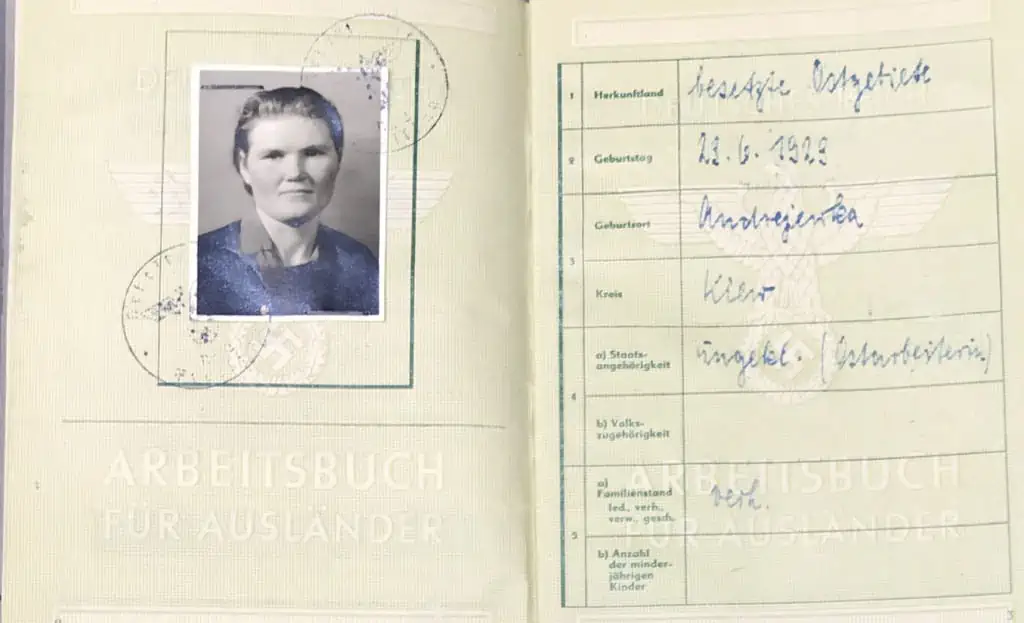 ARBEITSBUCH
FÜR AUSLÄNDER
1 Herkunftland besetzte Ostgebiete
2 Geburtstag 29. 6. 1929
3 Geburtsort Andrejewka
Kreis Kiew
4 a) Staats-
angehörigkeit ungekl. (Ostarbeiterin)
b) Volks-
zugehörigkeit
5 a)
Familienstand verh.
led., verh.,
verw., gesch.
b) Anzahl
der minder-
jährigen
Kinder
ARBEITSBUCH
FÜR AUSLÄNDER
3